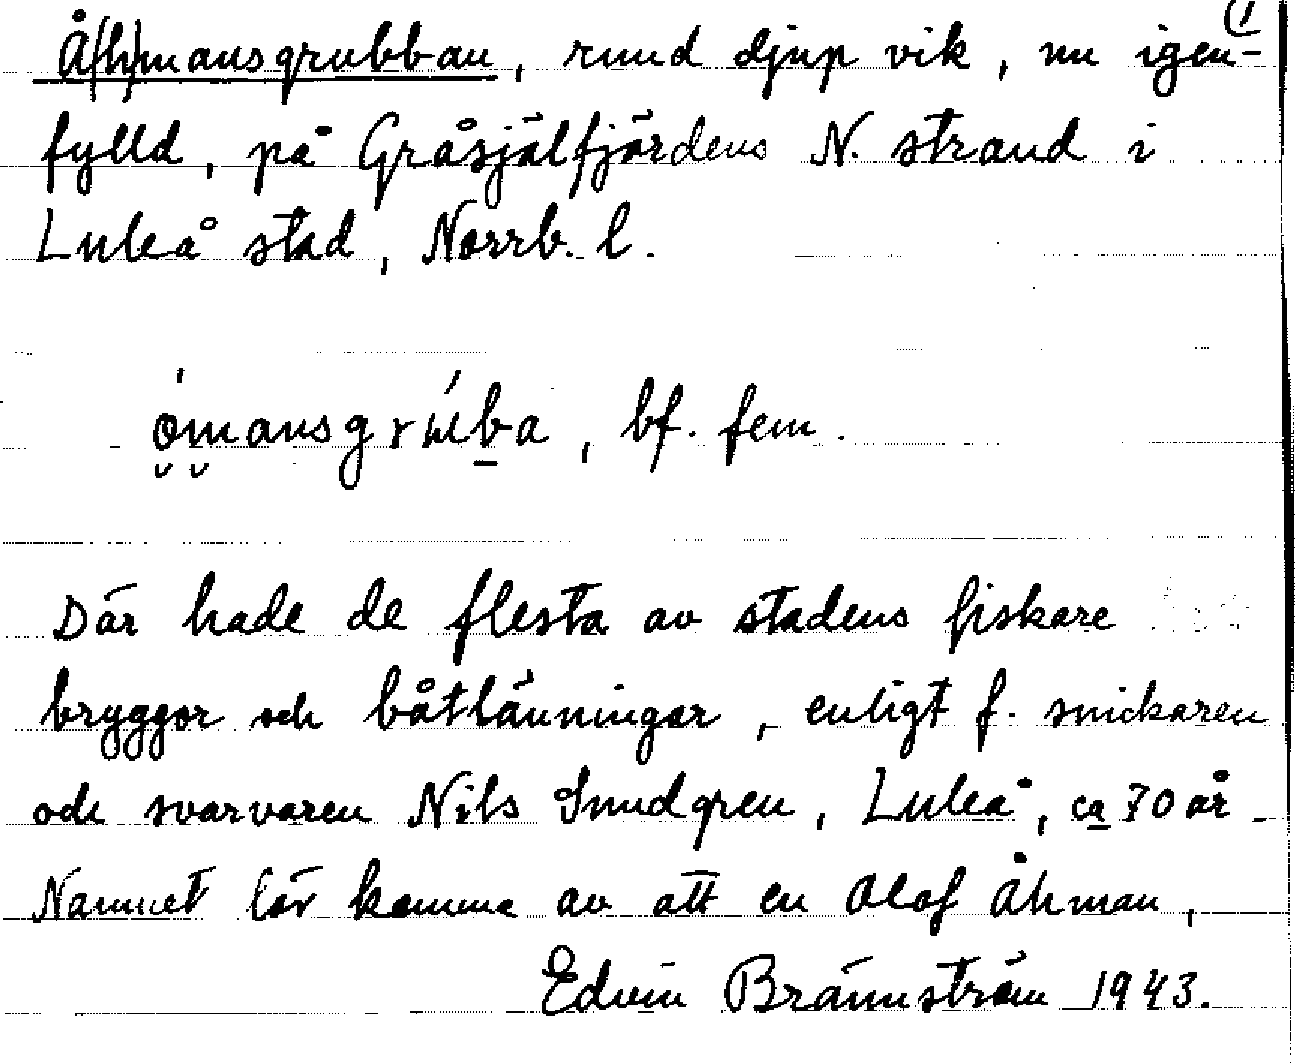 (1
Å(h)mansgrubban, rund djup vik, nu igen-
fylld, på Gråsjälfjärdens N. strand i
Luleå stad, Norrb. l.
ómansgrúba, bf. fem.
Där hade de flesta av stadens fiskare
bryggor och båtlänningar, enligt f. snickaren
och svarvaren Nils Smedgren, Luleå, ca 70 år.
Namnet lär komma av att en Olof Åhman,
Edvin Brännström 1943.